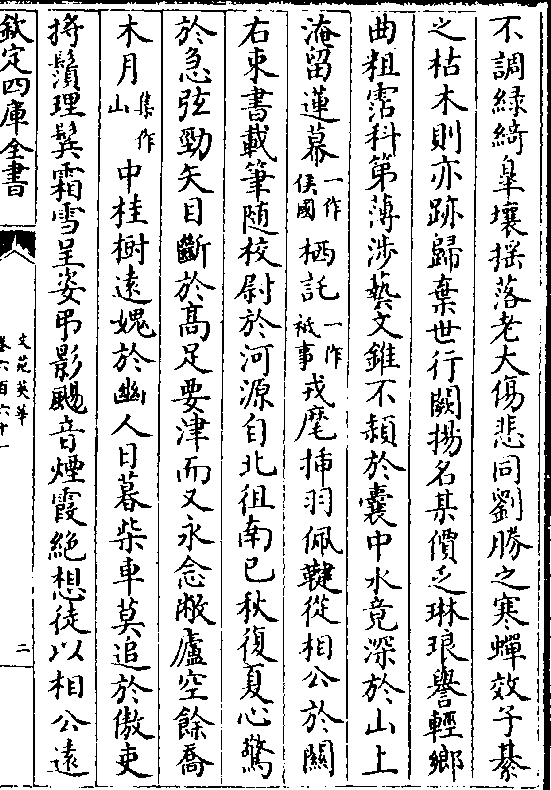 不調綠綺臯壤揺落老大傷悲同劉勝之寒蟬效子綦
之枯木則亦跡歸棄世行闕揚名某價乏琳琅譽輕鄉
曲粗霑科第薄涉藝文錐不頴於囊中水竟深於山上
淹留蓮幕一作侯國栖託一作祗事戎麾揷羽佩鞬從相公於關
右束書載筆随校尉於河源自北徂南已秋復夏心驚
於急弦勁矢目斷於髙足要津而又永念敝廬空餘喬
木月集作山中桂樹遠媿於幽人日暮柴車莫追於傲吏
捋鬚理鬢霜雪呈姿弔影颺音煙霞絶想徒以相公遠
欽定四庫全書
文苑英華
卷六百六十一
二